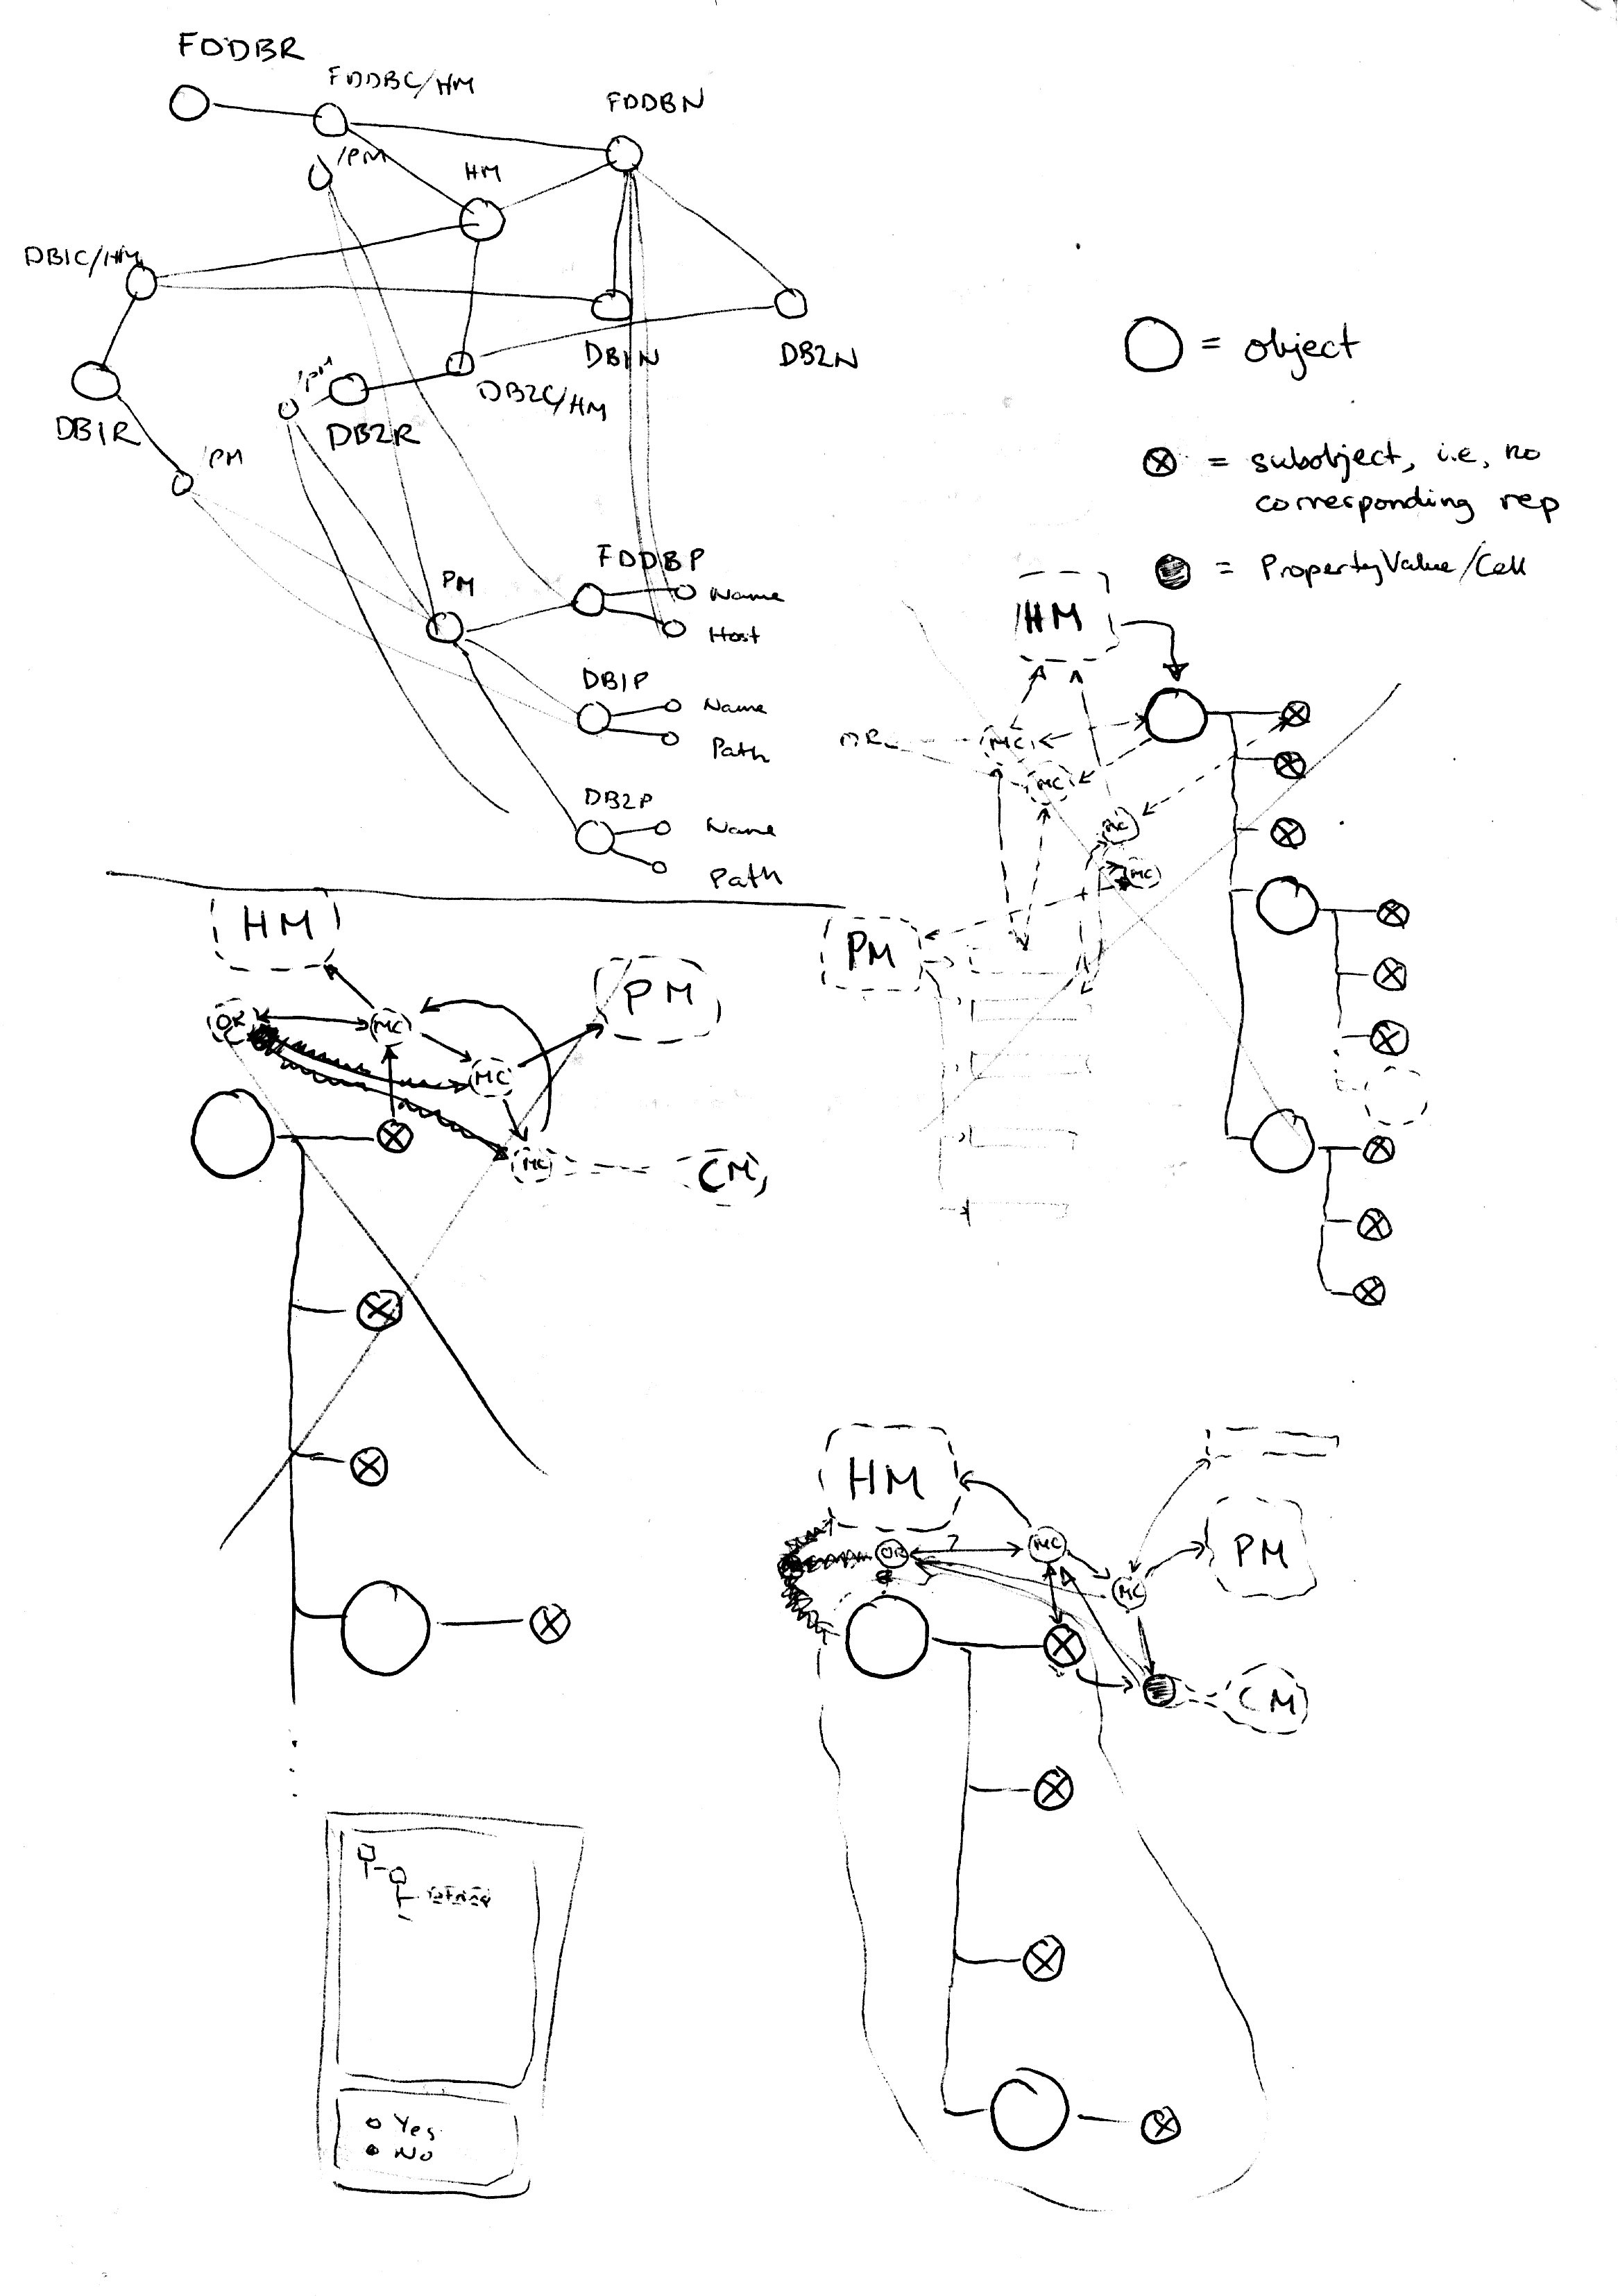 FDDBR
FDDBC/HM
FDDBN
/PM
HM
DB1C/HM
DB1N
DB2N
/PM
DB2C/HM
DB1R
DB2R
/PM
FDDBP
PM
Name
Host
DB1P
Name
Path
DB2P
Name
Path
= object
= subobject, i.e, no
corresponding rep
= PropertyValue/Cell
HM
MC
MC
MC
MC
PM
HM
PM
OR
MC
MC
MC
CM
HM
OR
?
MC
MC
PM
CM
Yes
No